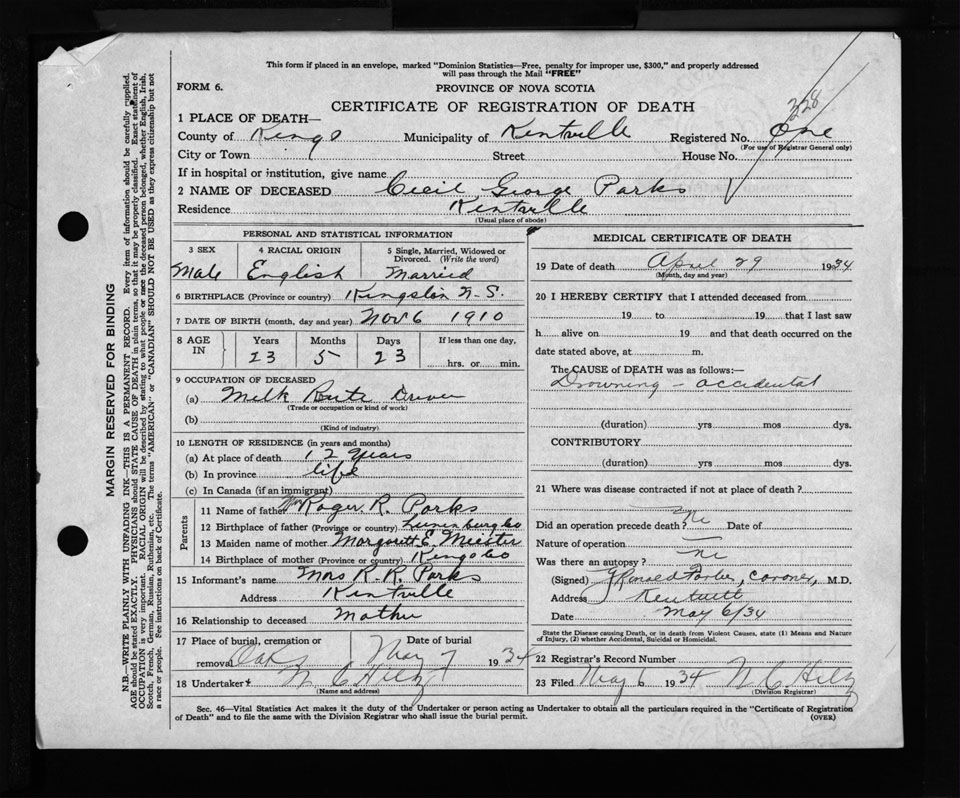 This form if placed in an envelope, marked "Dominion Statistics—Free, penalty for improper use, $300," and properly addressed
will pass through the Mail "FREE"
FORM 6.
PROVINCE OF NOVA SCOTIA
CERTIFICATE OF REGISTRATION OF DEATH
328
1 PLACE OF DEATH—
County of Kings Municipality of Kentville Registered No. One
(For use of Registrar General only)
City or Town Street House No.
If in hospital or institution, give name
2 NAME OF DECEASED Cecil George Parks
Residence Kentville
(Usual place of abode)
PERSONAL AND STATISTICAL INFORMATION
3 SEX 4 RACIAL ORIGIN 5 Single, Married, Widowed or Divorced. (Write the word)
Male English Married
6 BIRTHPLACE (Province or country) Kingston N.S.
7 DATE OF BIRTH (month, day and year) Nov 6 1910
8 AGE IN Years Months Days If less than one day,
23 5 23 hrs. or min.
9 OCCUPATION OF DECEASED
(a) Milk Driver
(Trade or occupation or kind of work)
(b)
(Kind of industry)
10 LENGTH OF RESIDENCE (in years and months)
(a) At place of death 12 years
(b) In province life
(c) In Canada (if an immigrant)
Parents
11 Name of father Roger R. Parks
12 Birthplace of father (Province or country) Lunenburg Co
13 Maiden name of mother Margarett E.
14 Birthplace of mother (Province or country) Kings Co
15 Informant's name Mrs R. R. Parks
Address Kentville
16 Relationship to deceased Mother
17 Place of burial, cremation or removal Oaks Date of burial May 7 1934
18 Undertaker
(Name and address)
MEDICAL CERTIFICATE OF DEATH
19 Date of death April 29 1934
(Month, day and year)
20 I HEREBY CERTIFY that I attended deceased from
19 to 19 that I last saw
h alive on 19 and that death occurred on the
date stated above, at m.
The CAUSE of DEATH was as follows:—
Drowning – accidental
(duration) yrs mos dys.
CONTRIBUTORY
(duration) yrs. mos. dys.
21 Where was disease contracted if not at place of death?
Did an operation precede death? No Date of
Nature of operation
Was there an autopsy? No
(Signed) Coroner, M.D.
Address
Date May 6/34
State the Disease causing Death, or in death from Violent Causes, state (1) Means and Nature
of Injury, (2) whether Accidental, Suicidal or Homicidal.
22 Registrar's Record Number
23 Filed May 6 1934
(Division Registrar)
Sec. 46—Vital Statistics Act makes it the duty of the Undertaker or person acting as Undertaker to obtain all the particulars required in the "Certificate of Registration
of Death" and to file the same with the Division Registrar who shall issue the burial permit.
(OVER)
MARGIN RESERVED FOR BINDING
N.B.—WRITE PLAINLY WITH UNFADING INK—THIS IS A PERMANENT RECORD. Every item of information should be carefully supplied.
AGE should be stated EXACTLY. PHYSICIANS should STATE CAUSE OF DEATH in plain terms, so that it may be properly classified. Exact statement of
OCCUPATION is very important. RACIAL ORIGIN will be described by stating to what people or race the deceased person belonged, whether English, Irish,
Scotch, French, German, Russian, Ruthenian, etc. The terms "AMERICAN" or "CANADIAN" SHOULD NOT BE USED as they express citizenship but not
a race or people. See instructions on back of Certificate.